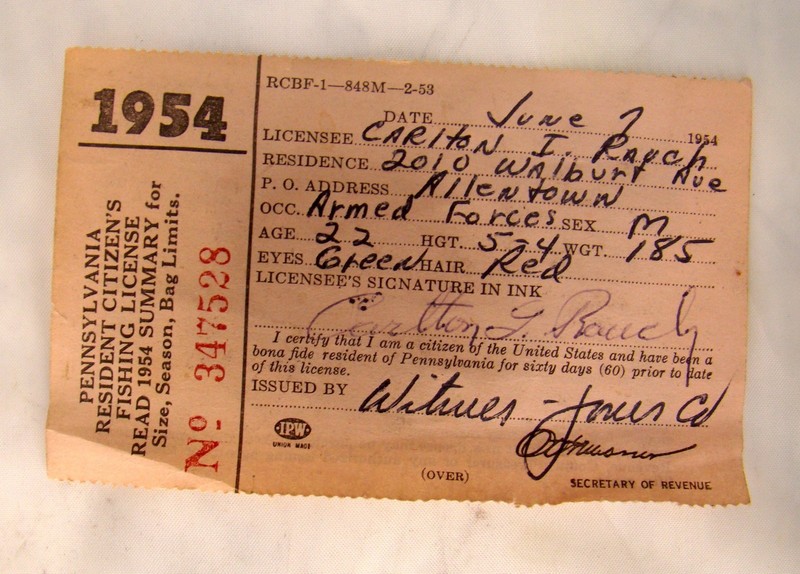 1954
PENNSYLVANIA
RESIDENT CITIZEN'S
FISHING LICENSE
READ 1954 SUMMARY for
Size, Season, Bag Limits.
No 347528
RCBF-1—848M—2-53
DATE June 7 1954
LICENSEE CARlton I. Rauch
RESIDENCE 2010 Walburt Ave
P. O. ADDRESS Allentown
OCC. Armed Forces SEX M
AGE 22 HGT. 5-4 WGT. 185
EYES Green HAIR Red
LICENSEE'S SIGNATURE IN INK
Carlton
I certify that I am a citizen of the United States and have been a
bona fide resident of Pennsylvania for sixty days (60) prior to date
of this license.
ISSUED BY Witwer - Jones Co
IPW
UNION MADE
(OVER)
SECRETARY OF REVENUE